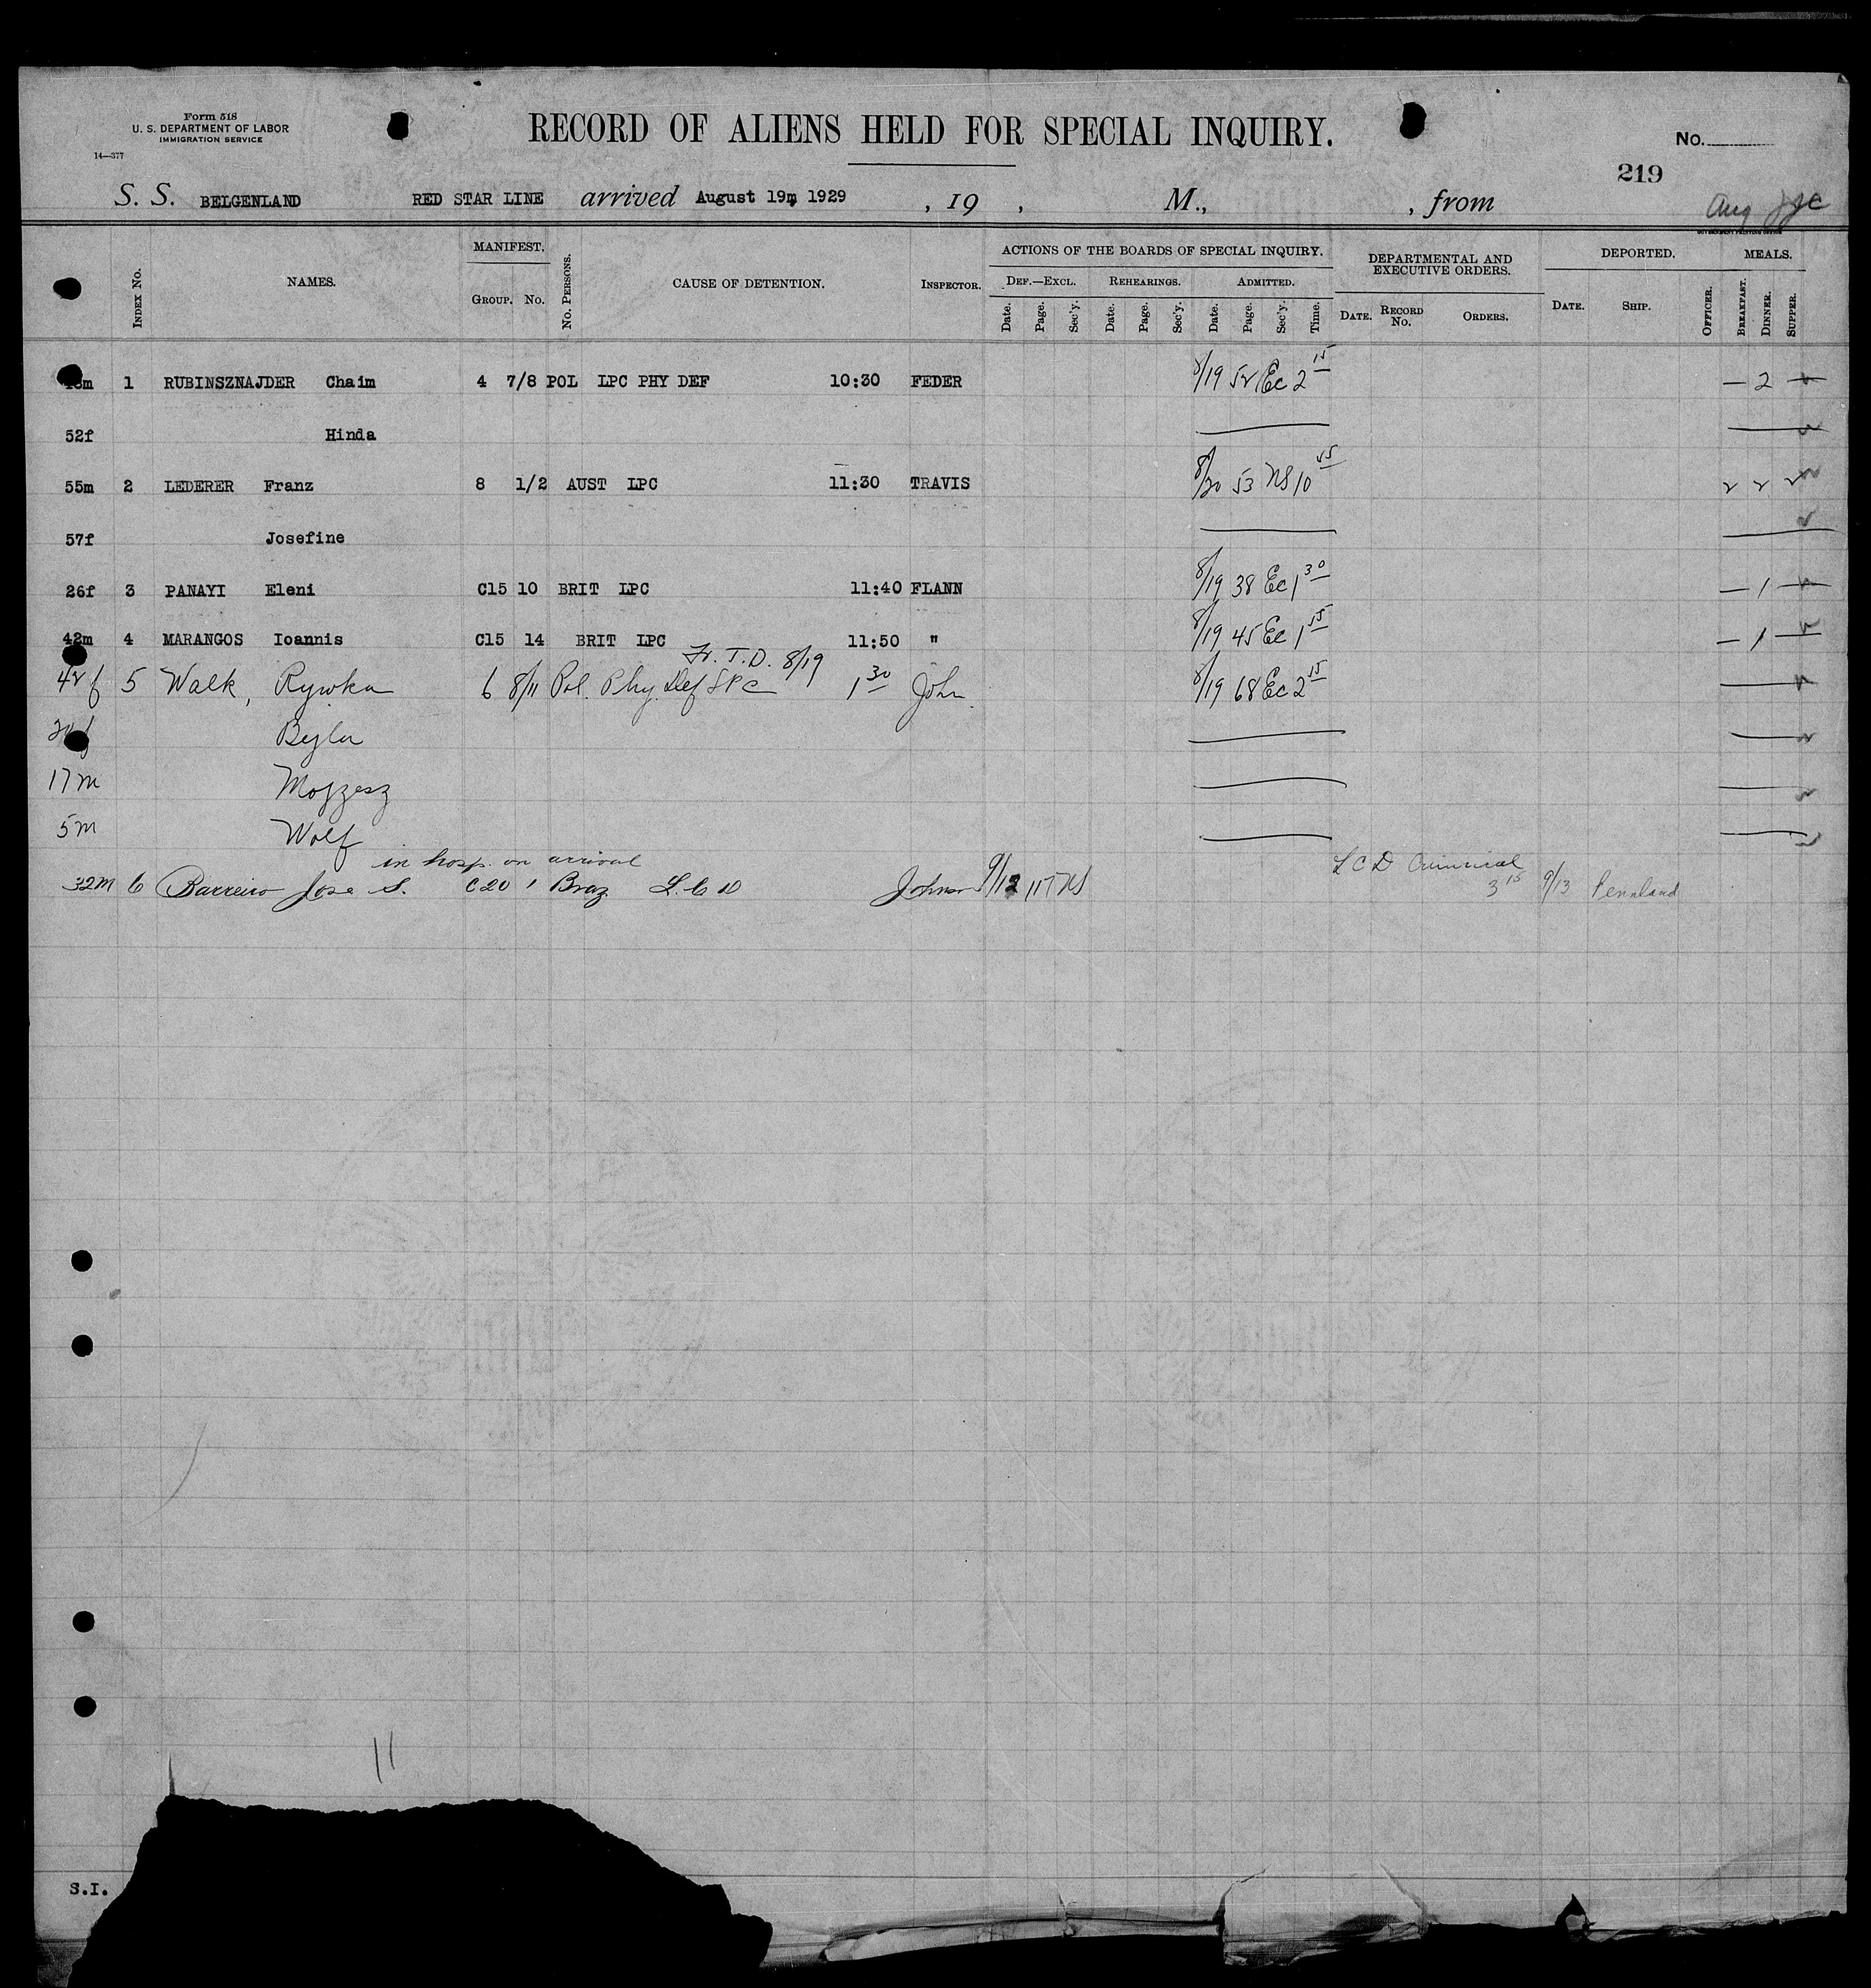 Form 518
U. S. DEPARTMENT OF LABOR
IMMIGRATION SERVICE
14—377
RECORD OF ALIENS HELD FOR SPECIAL INQUIRY.
No.
219
S. S. BELGENLAND RED STAR LINE arrived August 19m 1929 , 19 , M., , from
Aug
GOVERNMENT PRINTING OFFICE
INDEX No. NAMES. MANIFEST. GROUP. No. No. PERSONS. CAUSE OF DETENTION. INSPECTOR. ACTIONS OF THE BOARDS OF SPECIAL INQUIRY. DEF.—EXCL. REHEARINGS. ADMITTED. DEPARTMENTAL AND EXECUTIVE ORDERS. DEPORTED. MEALS.
Date. Page. Sec'y. Date. Page. Sec'y. Date. Page. Sec'y. Time. DATE. RECORD No. ORDERS. DATE. SHIP. OFFICER. BREAKFAST. DINNER. SUPPER.
1 RUBINSZNAJDER Chaim 4 7/8 POL LPC PHY DEF 10:30 FEDER 8/19 52 Ec 2 15 — 2 —
52f Hinda
55m 2 LEDERER Franz 8 1/2 AUST LPC 11:30 TRAVIS 8/20 53 NS 10 55 2 2 2
57f Josefine
26f 3 PANAYI Eleni C15 10 BRIT LPC 11:40 FLANN 8/19 38 Ec 1 30 — 1 —
42m 4 MARANGOS Ioannis C15 14 BRIT LPC 11:50 " 8/19 45 Ec 1 55 — 1 —
Fr. T.D. 8/19
42f 5 Walk, Rywka 6 8/11 Pol. Phy. Def LPC 1 30 John. 8/19 68 Ec 2 15
Bejla
17m Mojzesz
5m Wolf
in hosp. on arrival
32m 6 Barreiro Jose S. C20 1 Braz L.C D Johnson 9/12 117 NS LCD Criminal 3 15 9/13 Pennland
11
S.I.